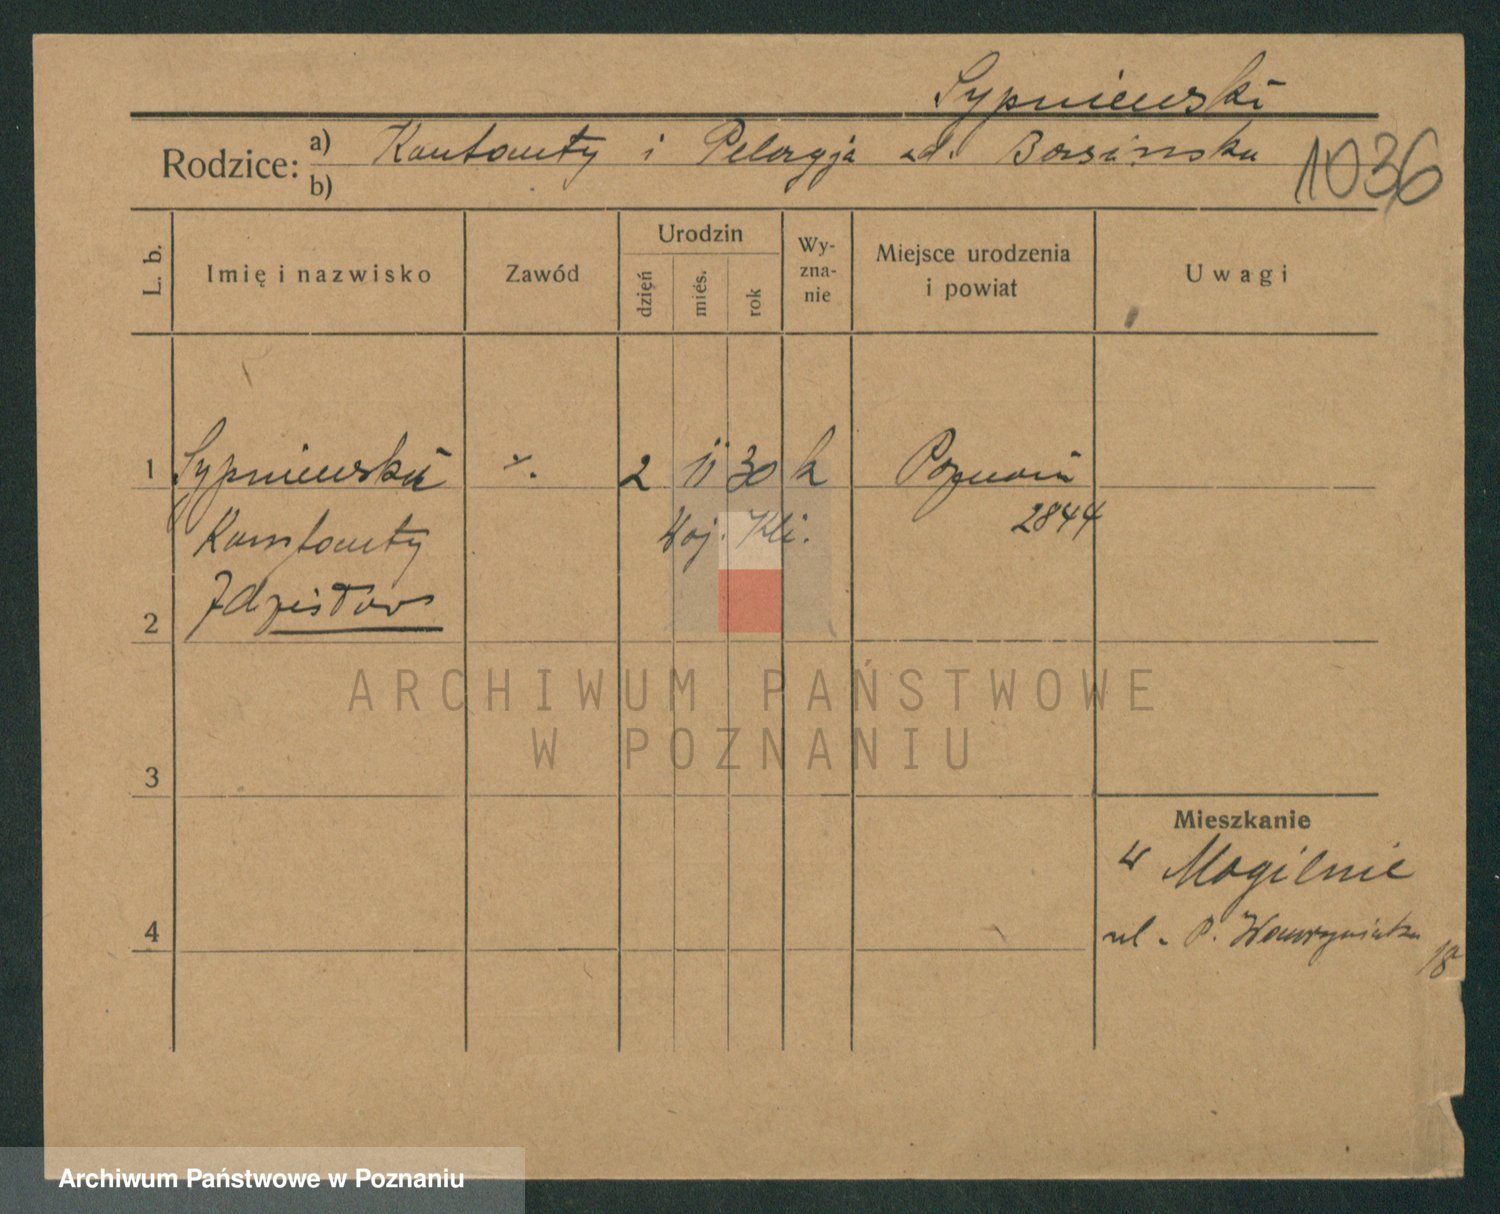 Sypniewski
Rodzice: a) Kantanty i Pelagja zd. Borsińska
b)
1036
L. b.
Imię i nazwisko
Zawód
Urodzin
dzień
mieś.
rok
Wy-
zna-
nie
Miejsce urodzenia
i powiat
Uwagi
1 Sypniewski 2 11 30 k Poznań
Kantanty Woj. Kli. 2844
2 Zdzisław
ARCHIWUM PAŃSTWOWE
W POZNANIU
3
Mieszkanie
w Mogilnie
4 ul. P. Wawrzyniaka
18
Archiwum Państwowe w Poznaniu